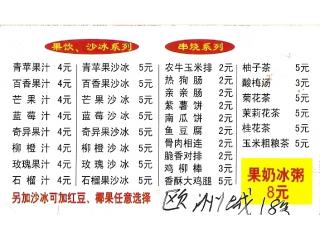 果饮、沙冰系列
青苹果汁 4元 青苹果沙冰 5元
百香果汁 4元 百香果沙冰 5元
芒果汁 4元 芒果沙冰 5元
蓝莓汁 4元 蓝莓沙冰 5元
奇异果汁 4元 奇异果沙冰 5元
柳橙汁 4元 柳橙沙冰 5元
玫瑰果汁 4元 玫瑰果沙冰 5元
石榴汁 4元 石榴沙冰 5元
另加沙冰可加红豆、椰果任意选择
串烧系列
农牛玉米排 2元
热狗肠 2元
亲亲肠 2元
紫薯饼 2元
南瓜饼 2元
鱼豆腐 2元
骨肉相连 2元
脆香对排 2元
鸡柳棒 3元
香酥大鸡腿 5元
柚子茶 5元
酸梅汤 3元
菊花茶 5元
茉莉花茶 5元
桂花茶 5元
玉米粗粮茶 5元
果奶冰粥
8元
欧洲城 18